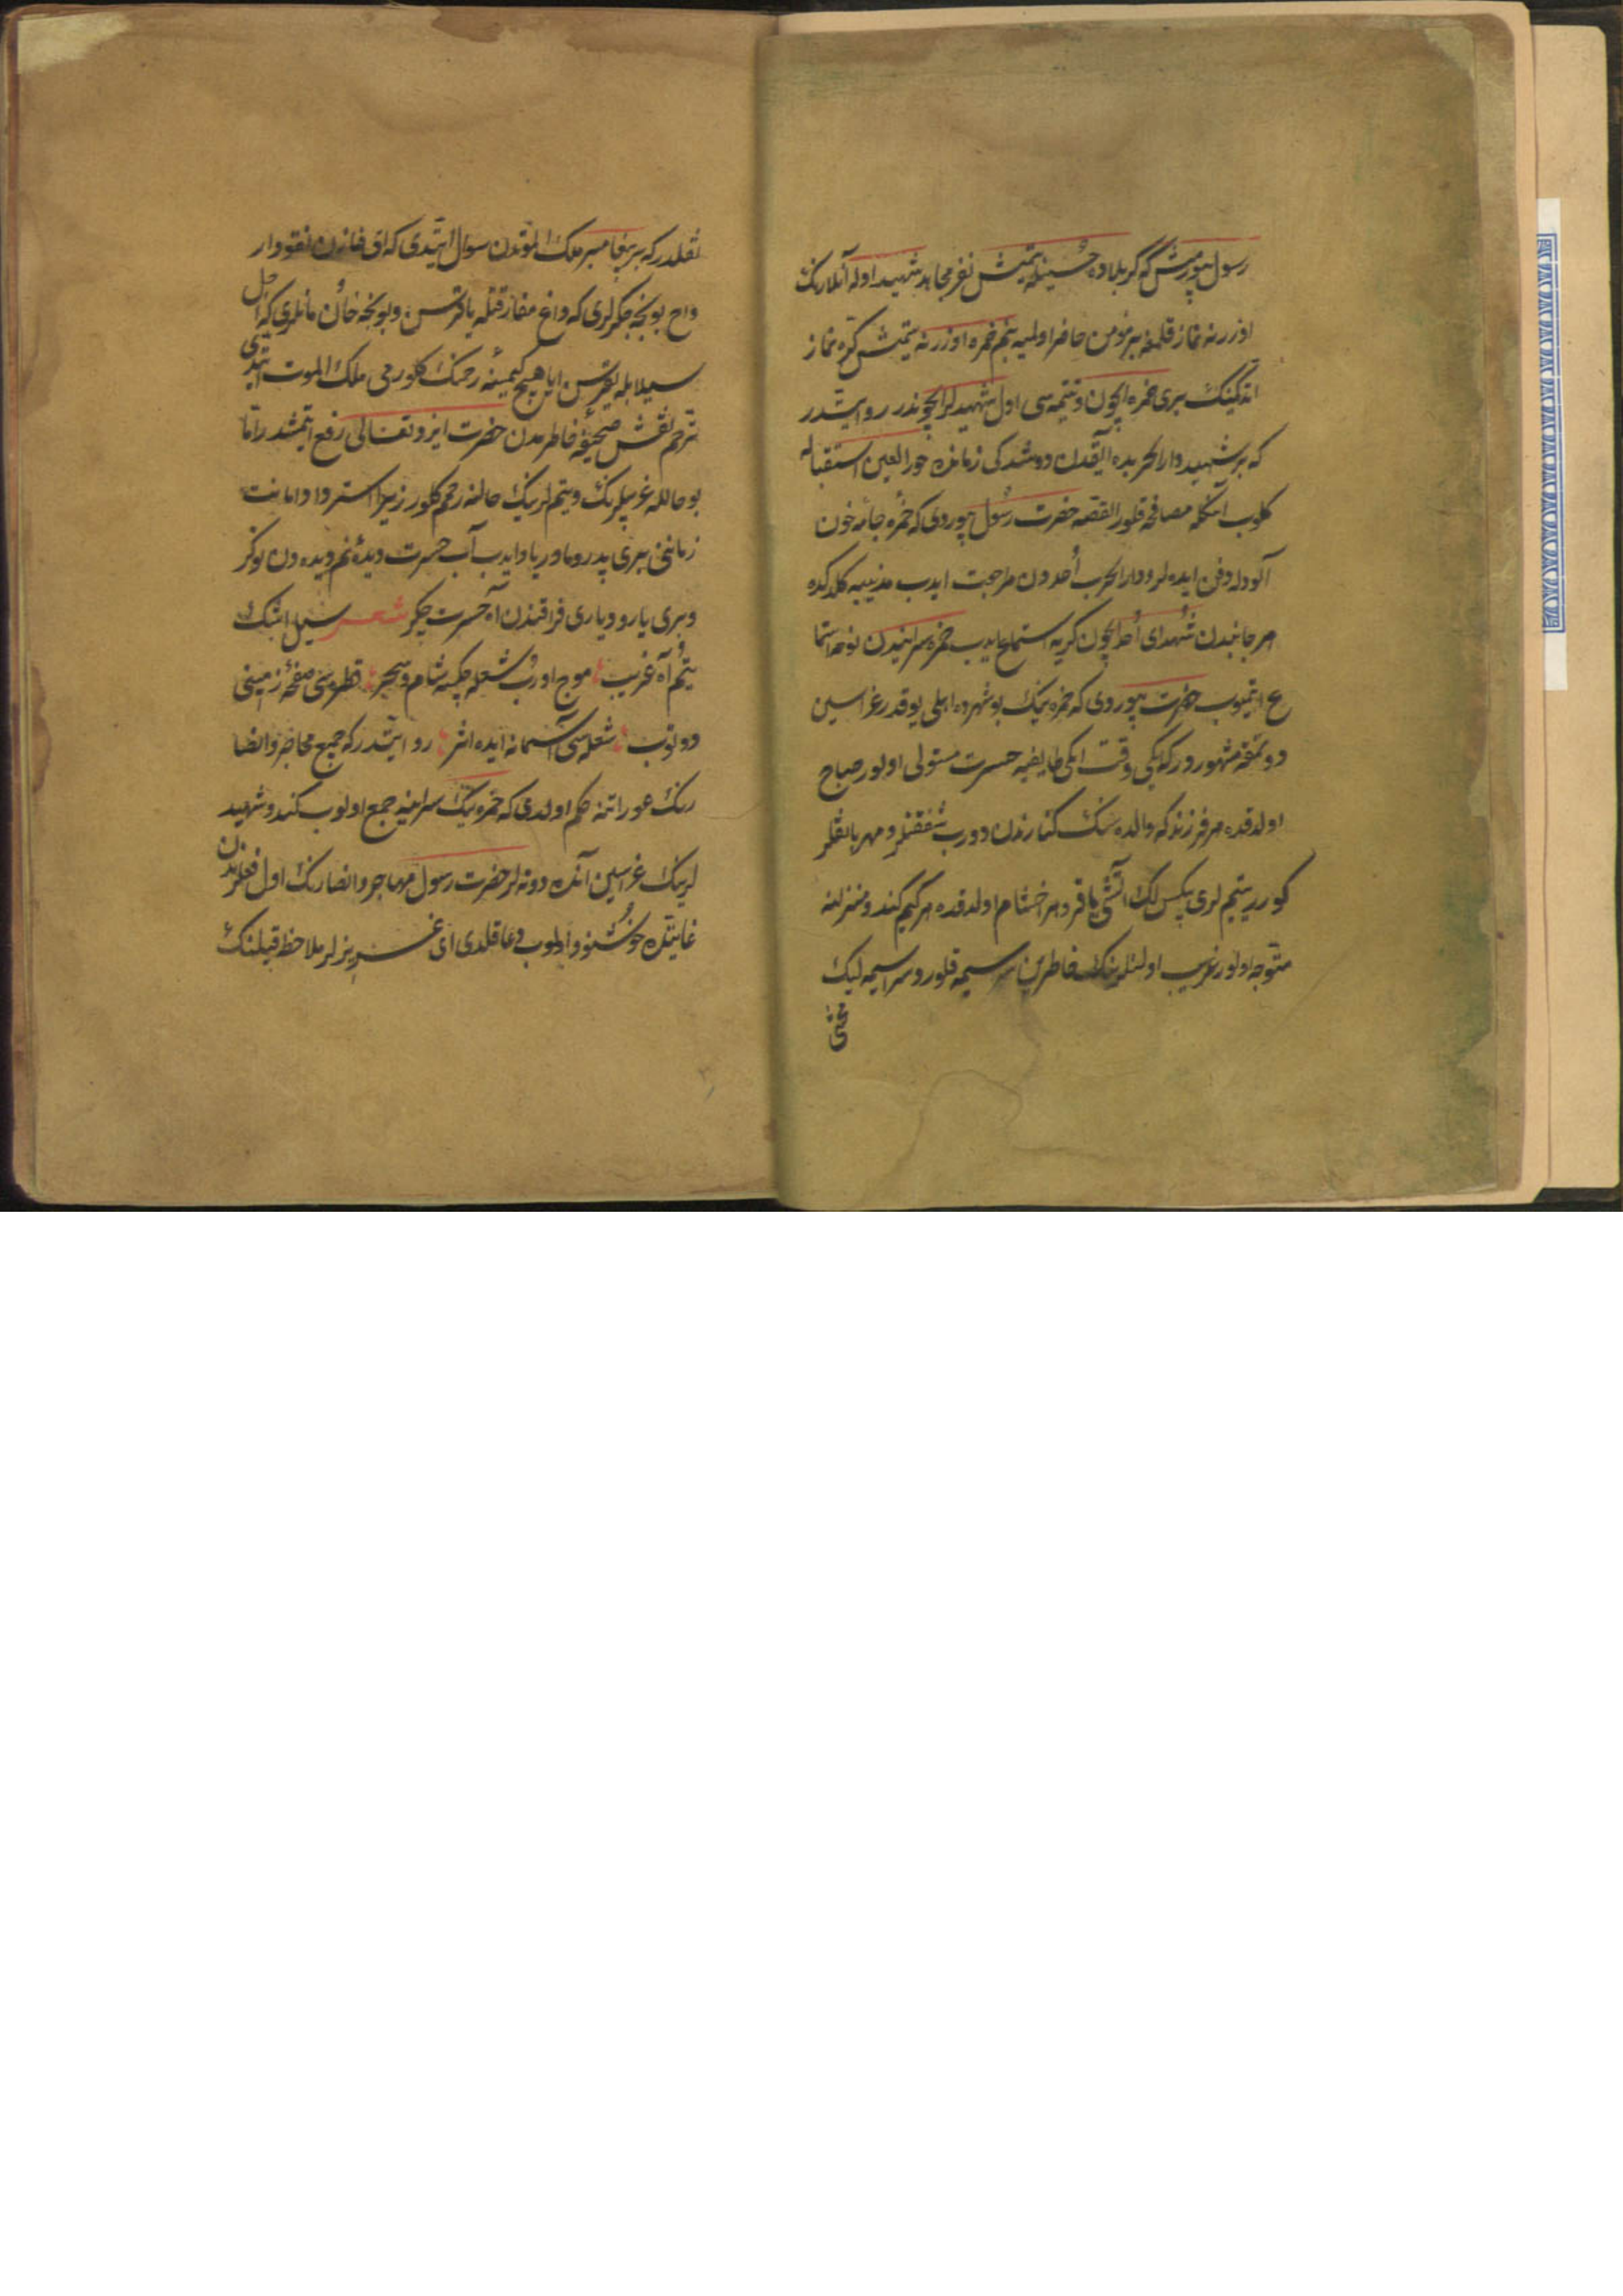 رسول بیورمش که کربلاده حسینله یتمیش نفر مجاهد شهید اوله آنلارنك
اوزرنه نماز قلمغه بر مؤمن حاضر اولمیه بنم حمزه اوزرنه یتمیش کره نماز
ایتدکینك بری حمزه ایچون و تتمه سی اول شهیدلر ایچوندر روایتدر
که بر شهید دار الحربده آتیقدن دوشدکی زمانده حور العین استقباله
کلوب آنکله مصافحه قلور القصه حضرت رسول بیوردی که حمزه جامه خون
آلودله دفن ایده لر و دار الحرب اُحددن مراجعت ایدب مدینیه کلدکده
هر جانبدن شُهدای اُحد ایچون کریه استماع ایدب حمزه سرایندن نوحه استما
ع ایتمیوب حضرت بیوردی که حمزه نیك بو شهرده اهلی یوقدر عزاسین
دوتمغه مشهوردر که ایکی وقت ایکی طایفیه حسرت مستولی اولور صباح
اولدقده هر فرزند که والده سنك کنارندن دورب شفقتلر و مهربانلقلر
کورر یتیم لری بیکس لك آتشی یاقر و هر اخشام اولدقده هر کیم کندو منزلنه
متوجه اولور غریب اولنلرینك خاطرین سراسیمه قلور و سراسیمه لیك
نقلدر که بر پیغامبر ملك الموتدن سوال ایتدی که ای خازن نقود ار
واح بونجه جکرلری که داغ مفارقتله یاقرسن و بونجه خان مانلری که اجل
سیلابله یقرسن ایا هیچ کیمسنه رحمك کلورمی ملك الموت ایتدی
ترحم نقش صحیفۀ خاطرمدن حضرت ایزد تعالی رفع ایتمشدر اما
بو حالله غریبلرنك و یتیم لرینك حالنه رحم کلور زیرا استرداد امانت
زمانی بری پدر و مادر یاد ایدب آب حسرت دیدۀ نم دیده دن توکر
و بری یار و دیاری فراقندن آه حسرت چکر شعر سیل اشك
یتیم آه غریب موج اورب شعله چکسه شام و سحر قطره سی صفحۀ زمینی
دوتوب شعله سی آسمانه ایده اثر روایتدر که جمیع مهاجر و انصا
رنك عوراتنه حکم اولدی که حمزه نیك سراینه جمع اولوب کندو شهید
لرینك عزاسین آنده دوته لر حضرت رسول مهاجر و انصارنك اول فعلندن
غایتده خوشنود اولوب دعا قلدی ای عزیزلر ملاحظه قیلنك